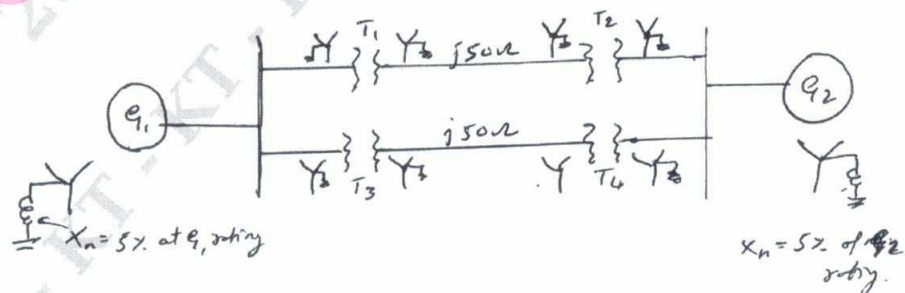 T₁
T₂
j50Ω
G₁
G₂
j50Ω
T₃
T₄
Xₙ = 5% at G₁ rating
Xₙ = 5% of G₂
rating.
KT - KT - KT